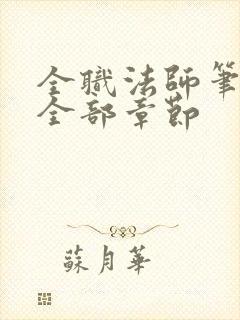 全職法師筆
全部章節
蘇月華